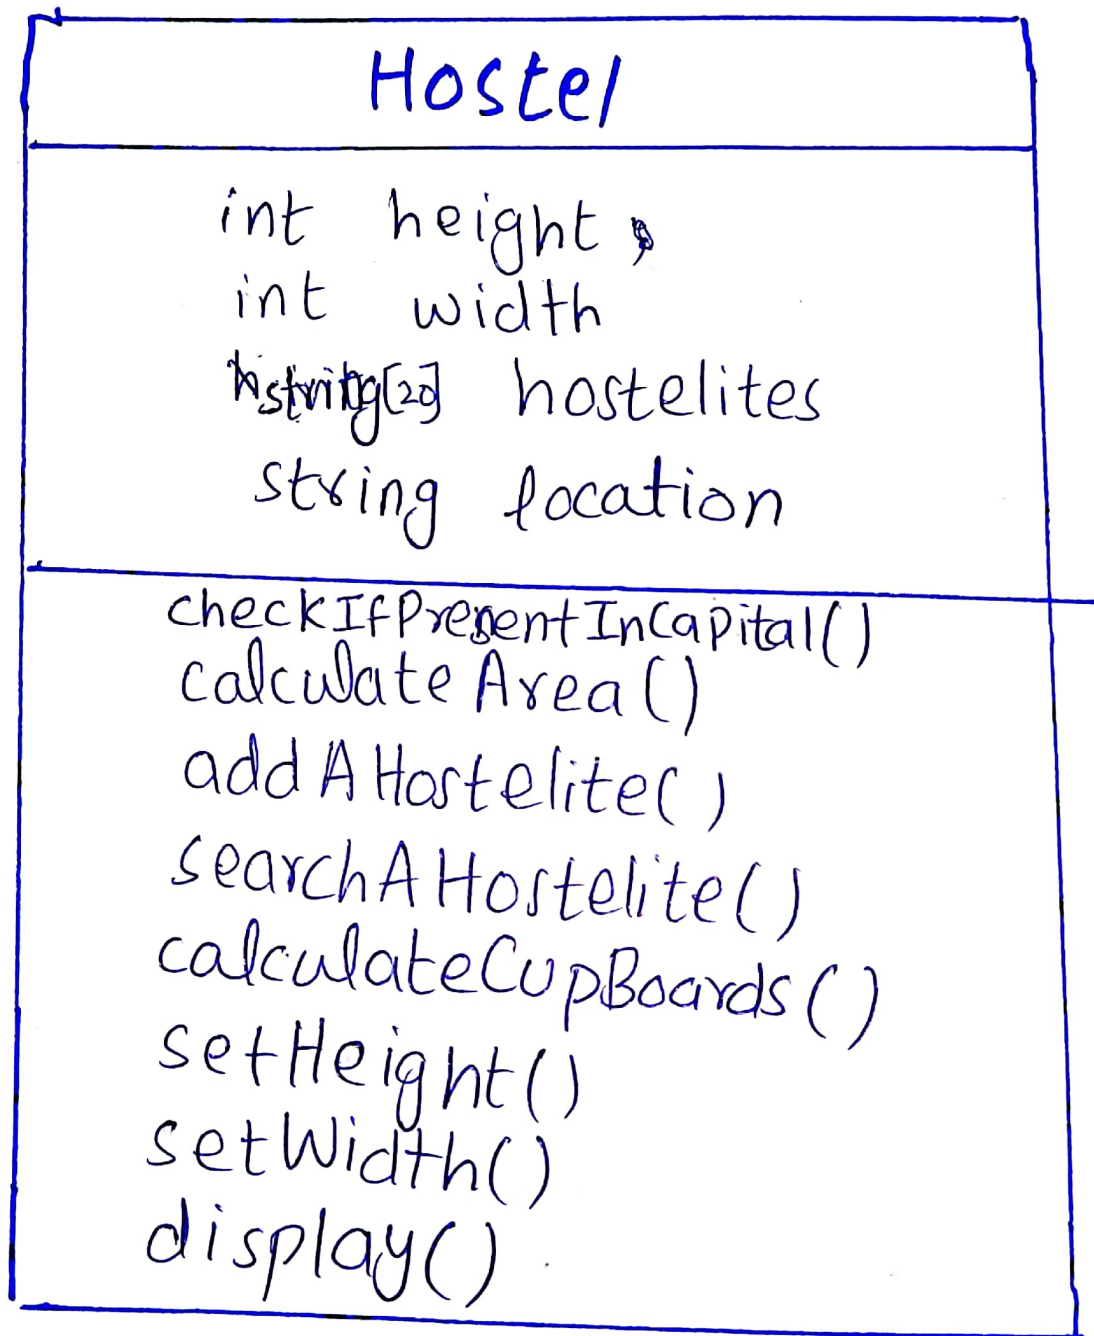 Hostel
int height,
int width
string[20] hostelites
string location
checkIfPresentInCapital()
calculateArea()
addAHostelite()
searchAHostelite()
calculateCupBoards()
setHeight()
setWidth()
display()